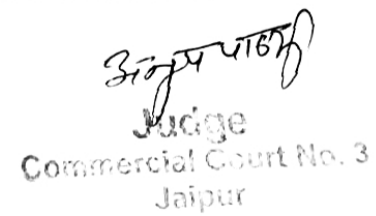 अनूप पाठक
Judge
Commercial Court No. 3
Jaipur